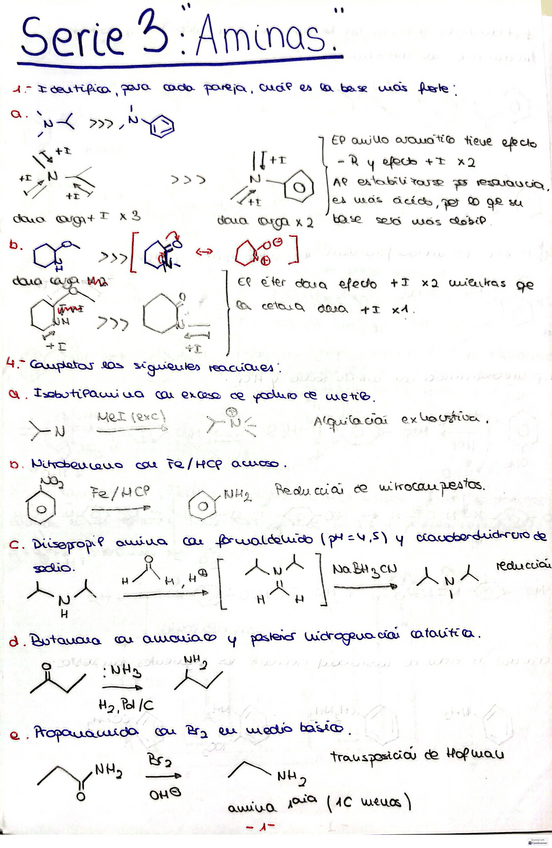 Serie 3: "Aminas."
1.- Identifica, para cada pareja, cuál es la base más fuerte:
a.
N >>> N
+I +I +I N >>> +I N
El anillo aromático tiene efecto
-R y efecto +I x2
Al estabilizarse por resonancia,
es más ácido, por lo que su
base será más débil.
dona carga +I x3 dona carga x2
b.
O N H >>> O N ↔ O ⊖ N ⊕
dona carga
El éter dona efecto +I x2 mientras que
la cetona dona +I x1.
>>> O N
+I +I
4.- Completar las siguientes reacciones:
a. Isobutilamina con exceso de yoduro de metilo.
N MeI (exc) N ⊕ Alquilación exhaustiva.
b. Nitrobenceno con Fe/HCl acuoso.
NO2 Fe/HCl NH2 Reducción de nitrocompuestos.
c. Diisopropil amina con formaldehído (pH = 4,5) y cianoborohidruro de
sodio.
N H O H H , H⊕ N H H NaBH3CN N reducción
d. Butanona con amoniaco y posterior hidrogenación catalítica.
O :NH3 H2, Pd/C NH2
e. Propanamida con Br2 en medio básico.
NH2 O Br2 OH⊖ NH2 transposición de Hofman
amina 1aria (1C menos)
-1-